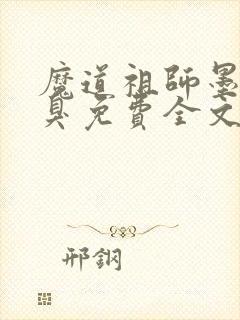 魔道祖師墨
臭免費全文
邢鋼